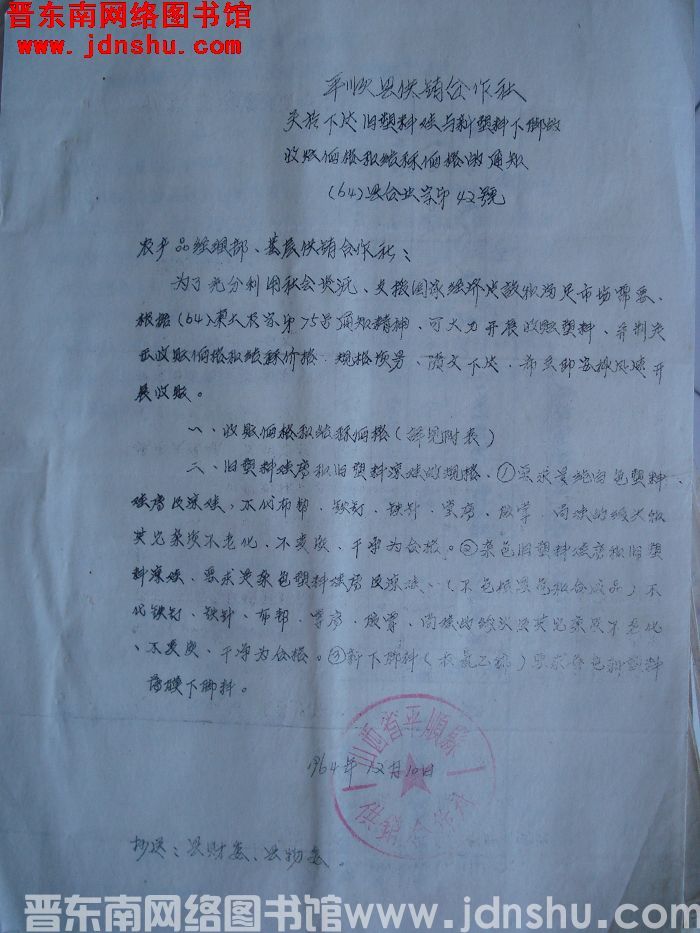 晋东南网络图书馆
www.jdnshu.com
平顺县供销合作社
关于下达旧塑料鞋与新塑料下脚的
收购価格和结算価格的通知
(64)县合业字第42號
农产品经理部、基层供销合作社：
为了充分利用社会资源、支援国家经济建设和满足市场需要、
根据(64)东大农字第75号通知精神、可大力开展收购塑料、并制定
出收购価格和结算价格、规格质另、随文下达、希立即安排迅速开
展收购。
一、收购価格和结算価格(详见附表)
二、旧塑料鞋底和旧塑料凉鞋的规格、①要求是纯白色塑料、
鞋底及凉鞋、不代布帮、铁钉、铁针、掌、胶掌、
其它杂质不老化、不变质、干净为合格。②杂色旧塑料鞋底和旧塑
料凉鞋、要求是杂色塑料鞋底及凉鞋、(不包括黑色和合成品)不
代铁钉、铁针、布帮、掌、胶掌、其它杂质不老化
、不变质、干净为合格。③新下脚料(聚氯乙烯)要求各色新塑料
薄膜下脚料。
1964年12月10日
山西省平順縣
供銷合作社
抄送：县财委、县物委。
晋东南网络图书馆 www.jdnshu.com